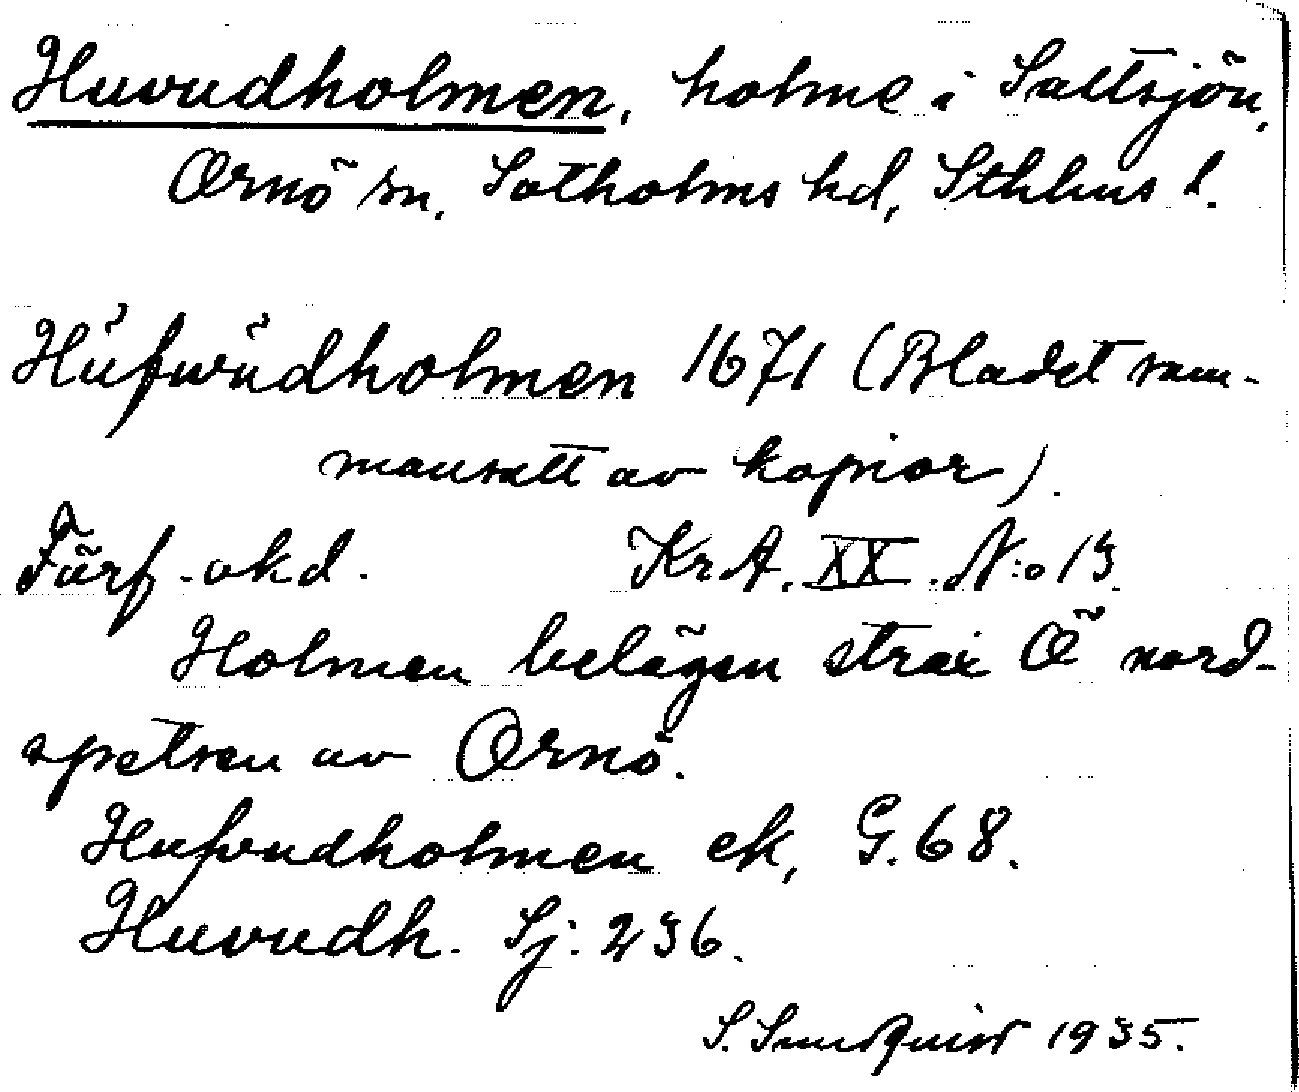 Huvudholmen, holme i Saltsjön,
Ornö sn, Sotholms hd, Sthlms l.
Hüfwüdholmen 1671 (Bladet sam-
mansatt av kopior).
Förf. okd. KrA. XX. N:o 13
Holmen belägen strax Ö nord-
spetsen av Ornö.
Hufvudholmen ek, G. 68.
Huvudh. Sj: 236.
S. Sundquist 1935.